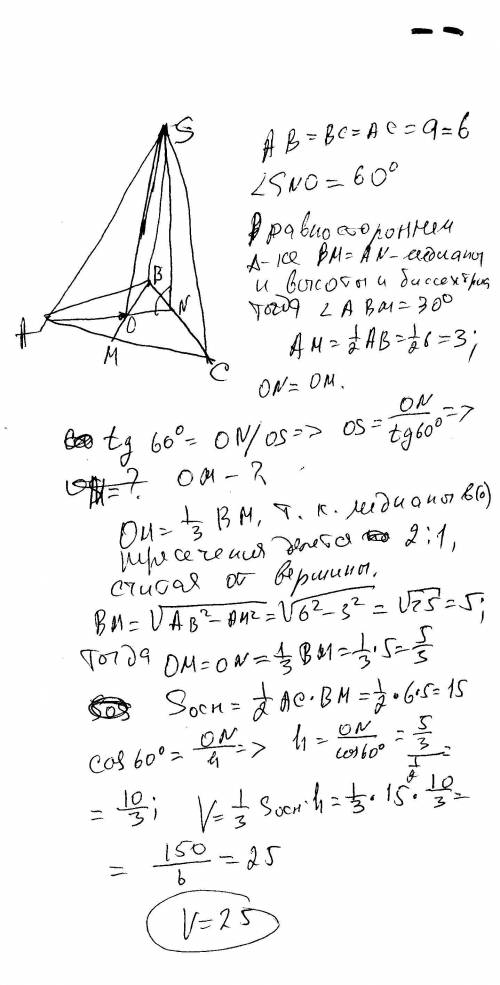 S
AB = BC = AC = a = 6
∠SNO = 60°
В равностороннем
Δ-ке BM = AN - медианы
и высоты и биссектрисы
тогда ∠ABM = 30°
AM = 1/2 AB = 1/2 6 = 3;
ON = OM.
B
A
O
N
M
C
tg 60° = ON/OS => OS = ON/tg60° =>
OM - ?
OM = 1/3 BM, т.к. медианы в (·)
пересечения делятся 2:1,
считая от вершины.
BM = √AB² - AM² = √6² - 3² = √25 = 5;
тогда OM = ON = 1/3 BM = 1/3 · 5 = 5/3
Sосн = 1/2 AC · BM = 1/2 · 6 · 5 = 15
cos 60° = ON/h => h = ON/cos60° = 5/3 / 1/2 =
= 10/3; V = 1/3 Sосн · h = 1/3 · 15 · 10/3 =
= 150/6 = 25
V = 25